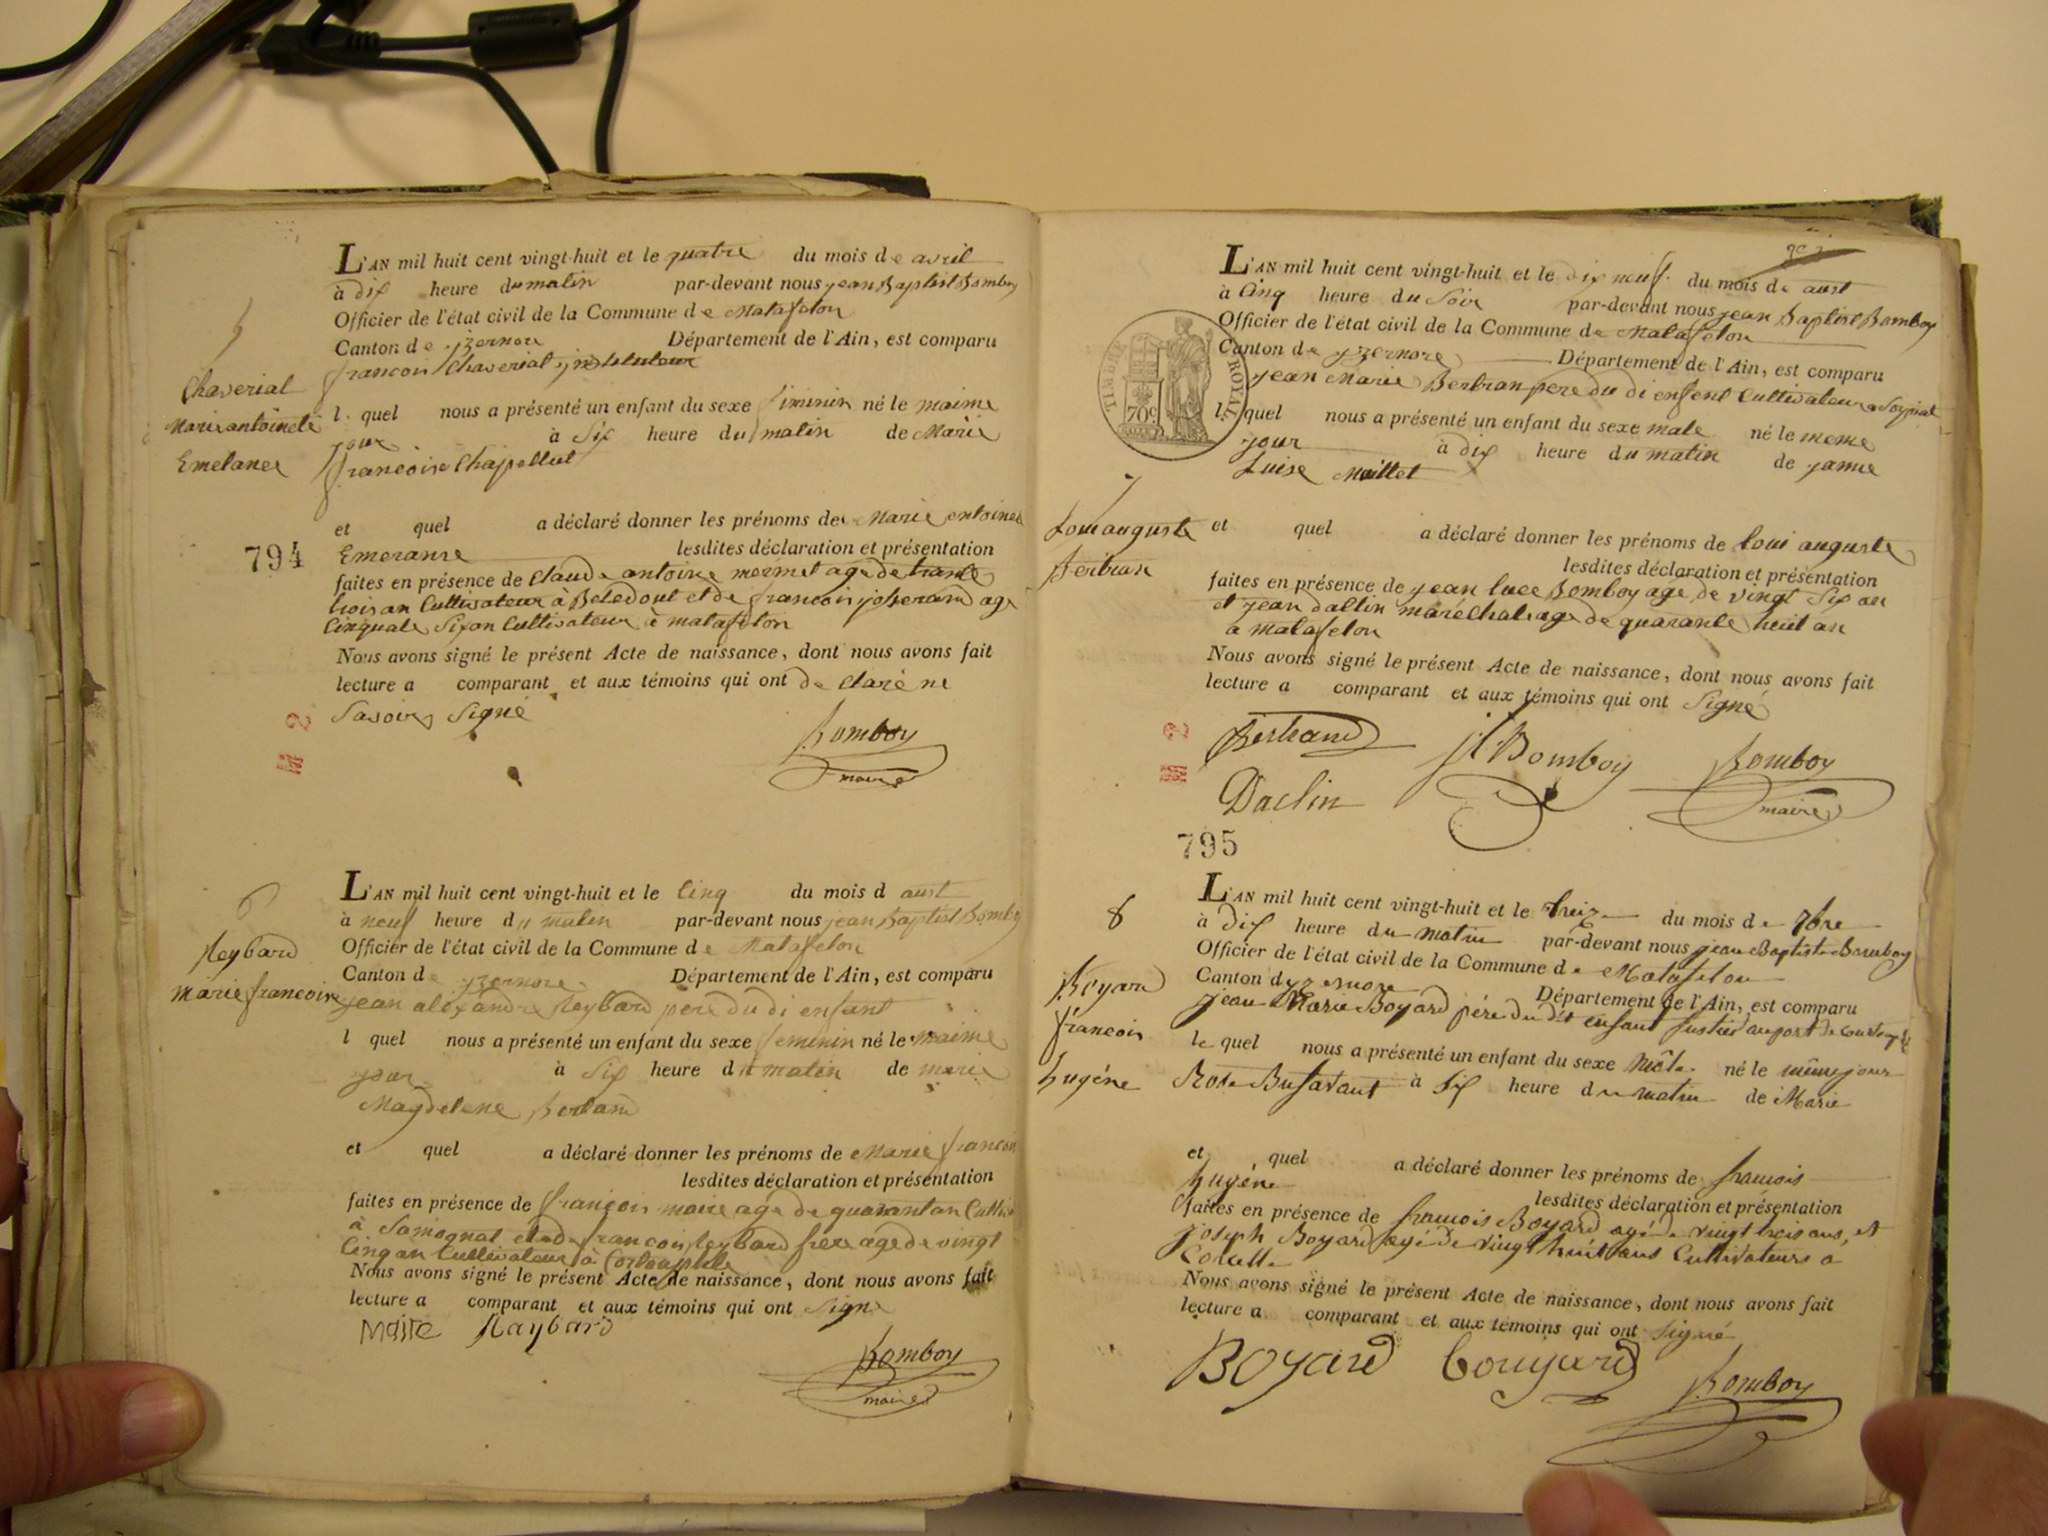 5
Chaverial
Marie antoinete
Emelance
794
L'AN mil huit cent vingt-huit et le quatre du mois de avril
à dix heure du matin par-devant nous jean Baptist Bomboy
Officier de l'état civil de la Commune de Matafelon
Canton de yzernore Département de l'Ain, est comparu
francois Chaverial instituteur
l quel nous a présenté un enfant du sexe feminin né le maime
jour à Six heure du matin de Marie
francoise Chapellut
et quel a déclaré donner les prénoms de Marie entoinet
Emeranse lesdites déclaration et présentation
faites en présence de Claude antoine mermet age de trante
trois an Cultivateur à Beledout et de francois joserand age
Cinquate Six an Cultivateur à matafelon
Nous avons signé le présent Acte de naissance, dont nous avons fait
lecture a comparant et aux témoins qui ont de Claré ne
Savoir Signé
Bomboy
maire
6
Reybard
marie francoise
L'AN mil huit cent vingt-huit et le Cinq du mois d aust
à neuf heure du matin par-devant nous jean Baptist Bomboy
Officier de l'état civil de la Commune de Matafelon
Canton de yzernore Département de l'Ain, est comparu
jean alexandre Reybard pere du di enfant
l quel nous a présenté un enfant du sexe feminin né le maime
jour à Six heure du matin de marie
Magdelene Bertand
et quel a déclaré donner les prénoms de Marie francois
lesdites déclaration et présentation
faites en présence de françois maire agé de quarant an Cultiv
à Samognat et de francois Reybard frere age de vingt
Cinq an Cultivateur à
Nous avons signé le présent Acte de naissance, dont nous avons fait
lecture a comparant et aux témoins qui ont Signe
Maire Raybard
Bomboy
maire
L'AN mil huit cent vingt-huit et le dix neuf du mois de aust
à Cinq heure du Soir par-devant nous jean Baptist Bomboy
Officier de l'état civil de la Commune de Matafelon
Canton de yzernore Département de l'Ain, est comparu
jean Marie Bertran pere du di enfent Cultivateur a
TIMBRE ROYAL
70c
l quel nous a présenté un enfant du sexe male né le meme
jour à dix heure du matin de
Luise Maillet
7
Loui auguste
Bertran
et quel a déclaré donner les prénoms de loui auguste
lesdites déclaration et présentation
faites en présence de jean luce Bomboy age de vingt Six an
et jean dallin maréchal age de quarante huit an
a matafelon
Nous avons signé le présent Acte de naissance, dont nous avons fait
lecture a comparant et aux témoins qui ont Signé
Bertrand jl Bomboy Bomboy
Daclin maire
795
8
Boyard
francois
hugéne
L'AN mil huit cent vingt-huit et le treize du mois de 7bre
à dix heure du matin par-devant nous jean Baptiste Bomboy
Officier de l'état civil de la Commune de Matafelon
Canton d yzernore Département de l'Ain, est comparu
jean Marie Boyard pére du dit enfant fustier au port de
le quel nous a présenté un enfant du sexe Mâle né le même jour
Rose Bufavant à Six heure du matin de Marie
et quel a déclaré donner les prénoms de francois
hugéne lesdites déclaration et présentation
faites en présence de francois Boyard agé de vingt trois ans, et
joseph Boyard agé de vingt huit ans Cultivateurs à
Nous avons signé le présent Acte de naissance, dont nous avons fait
lecture a comparant et aux témoins qui ont signé
BOyard Bouyard
Bomboy